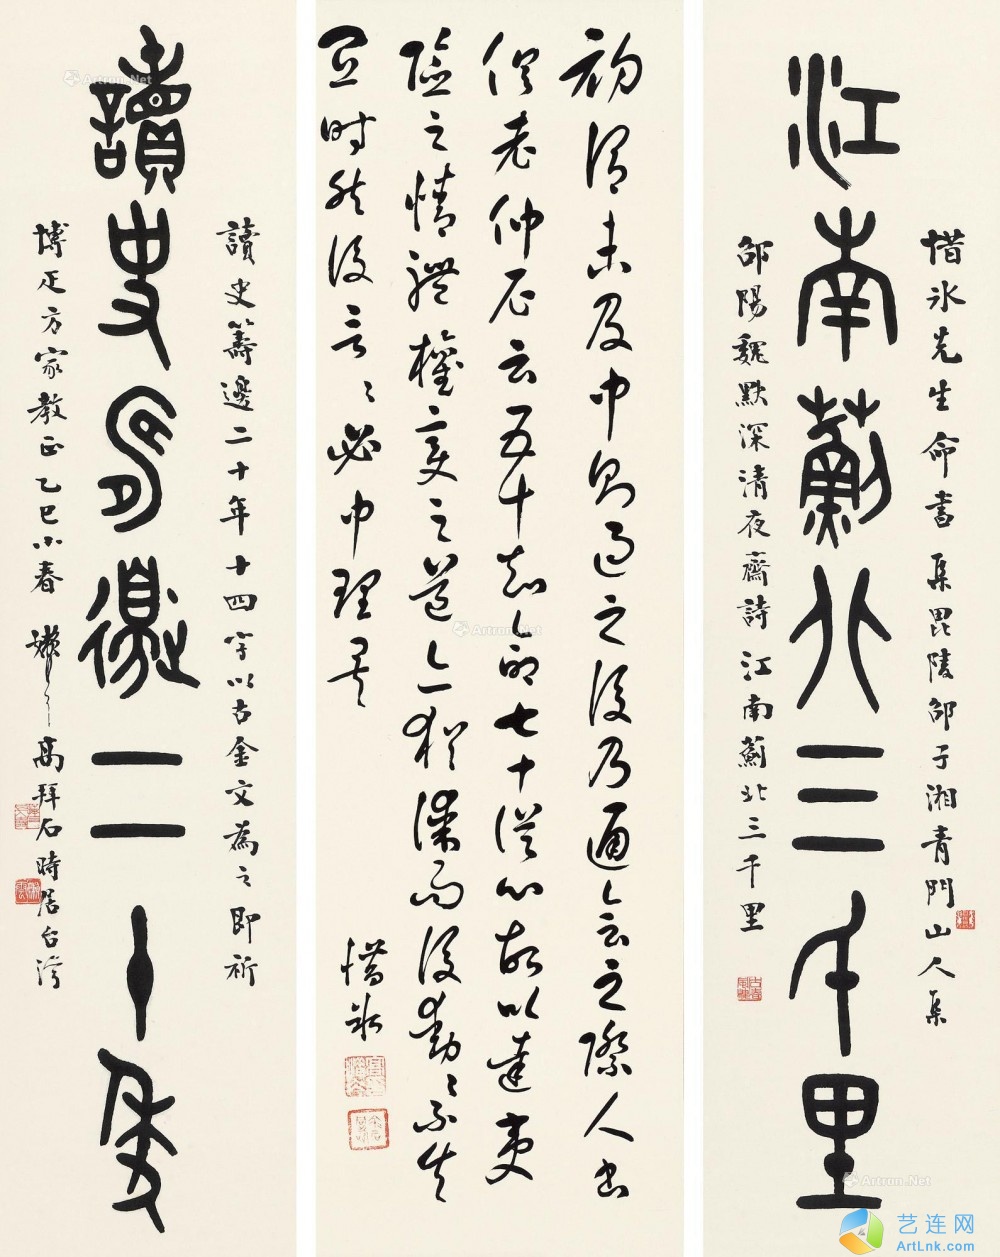 江南薊北三千里
惜冰先生命書集毘陵邵子湘青門山人集
邵陽魏默深清夜齋詩江南薊北三千里
初謂未及中則過之後乃通會之際人書
俱老仲尼云五十知命七十從心故以達夷
險之情體權變之道亦猶謀而後動動不失
宜時然後言言必中理矣
惜冰
讀史籌邊二十年
讀史籌邊二十年十四字以古金文為之即祈
博疋方家教正乙巳小春 高拜石時居台灣
Artron.Net
Artron.Net
Artron.Net
艺连网
ArtLnk.com